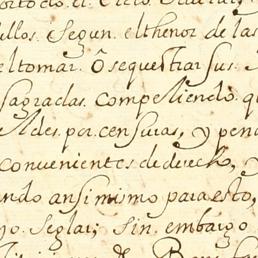 ullos. Segun. el thenor de las
el tomar. Ô sequestrar sus.
sagradas. Compeliendo. q
por. censuras, y pena
convenientes de derecho, y
ando ansimismo para esto,
seglar; Sin. embargo